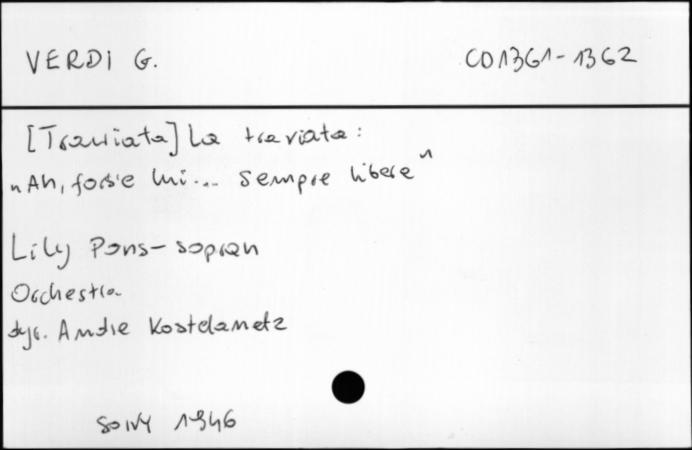 VERDI G. CO1361-1362
[Traviata] La traviata:
„Ah, fors'e lui... Sempre libere"
Lily Pons - sopran
Orchestra
dyr. Andre Kostelanetz
SONY 1946